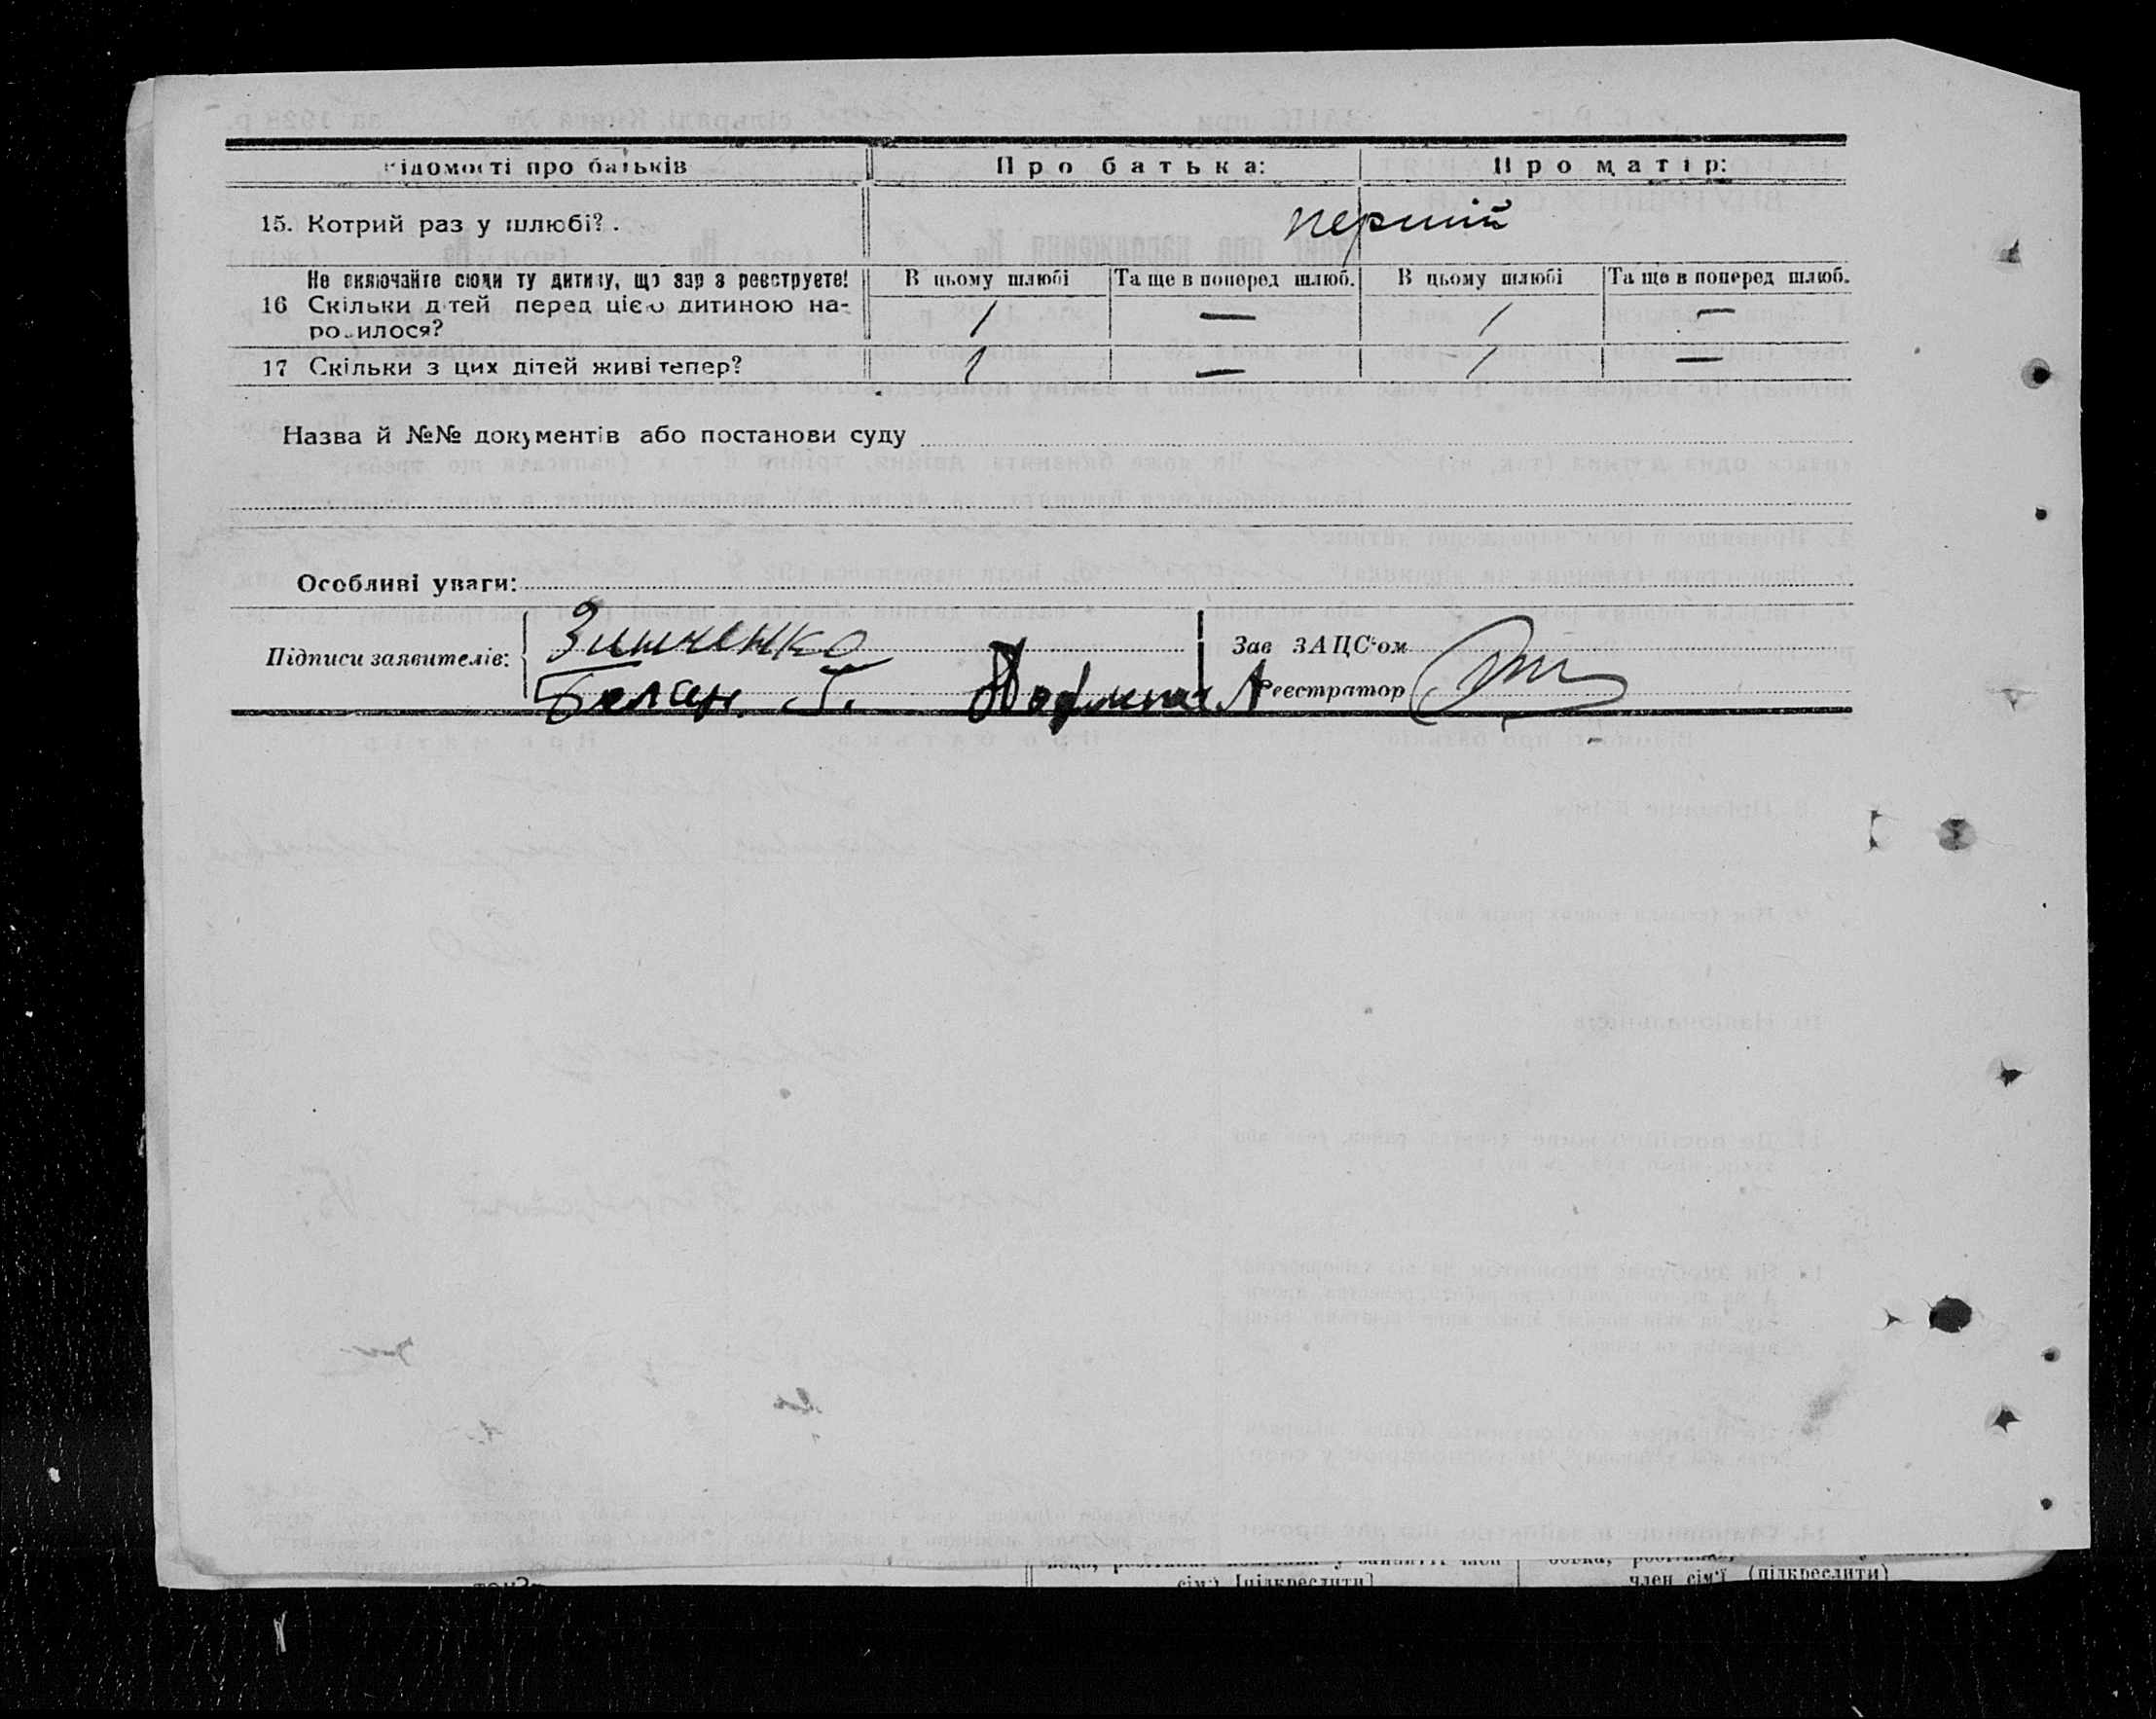 Відомості про батьків Про батька: Про матір:
15. Котрий раз у шлюбі? . перший
Не включайте сюди ту дитину, що зараз реєструєте! В цьому шлюбі Та ще в поперед шлюб. В цьому шлюбі Та ще в поперед шлюб.
16 Скільки дітей перед цією дитиною на-
родилося? 1 — 1 —
17 Скільки з цих дітей живі тепер? 1 — 1 —
Назва й №№ документів або постанови суду
Особливі уваги:
Підписи заявителів: Зинченко Зав ЗАЦС'ом
Белан. Г. Реєстратор
член сім'ї (підкреслити)